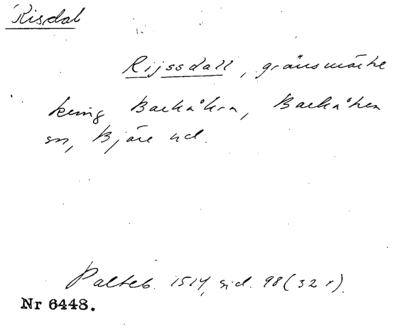 Risdal
Rijssdall, gränsmärke
kring Backåkra, Backåkra
sn, Bjäre hd.
Palteb. 1514, sid. 98 (32 r).
Nr 6448.